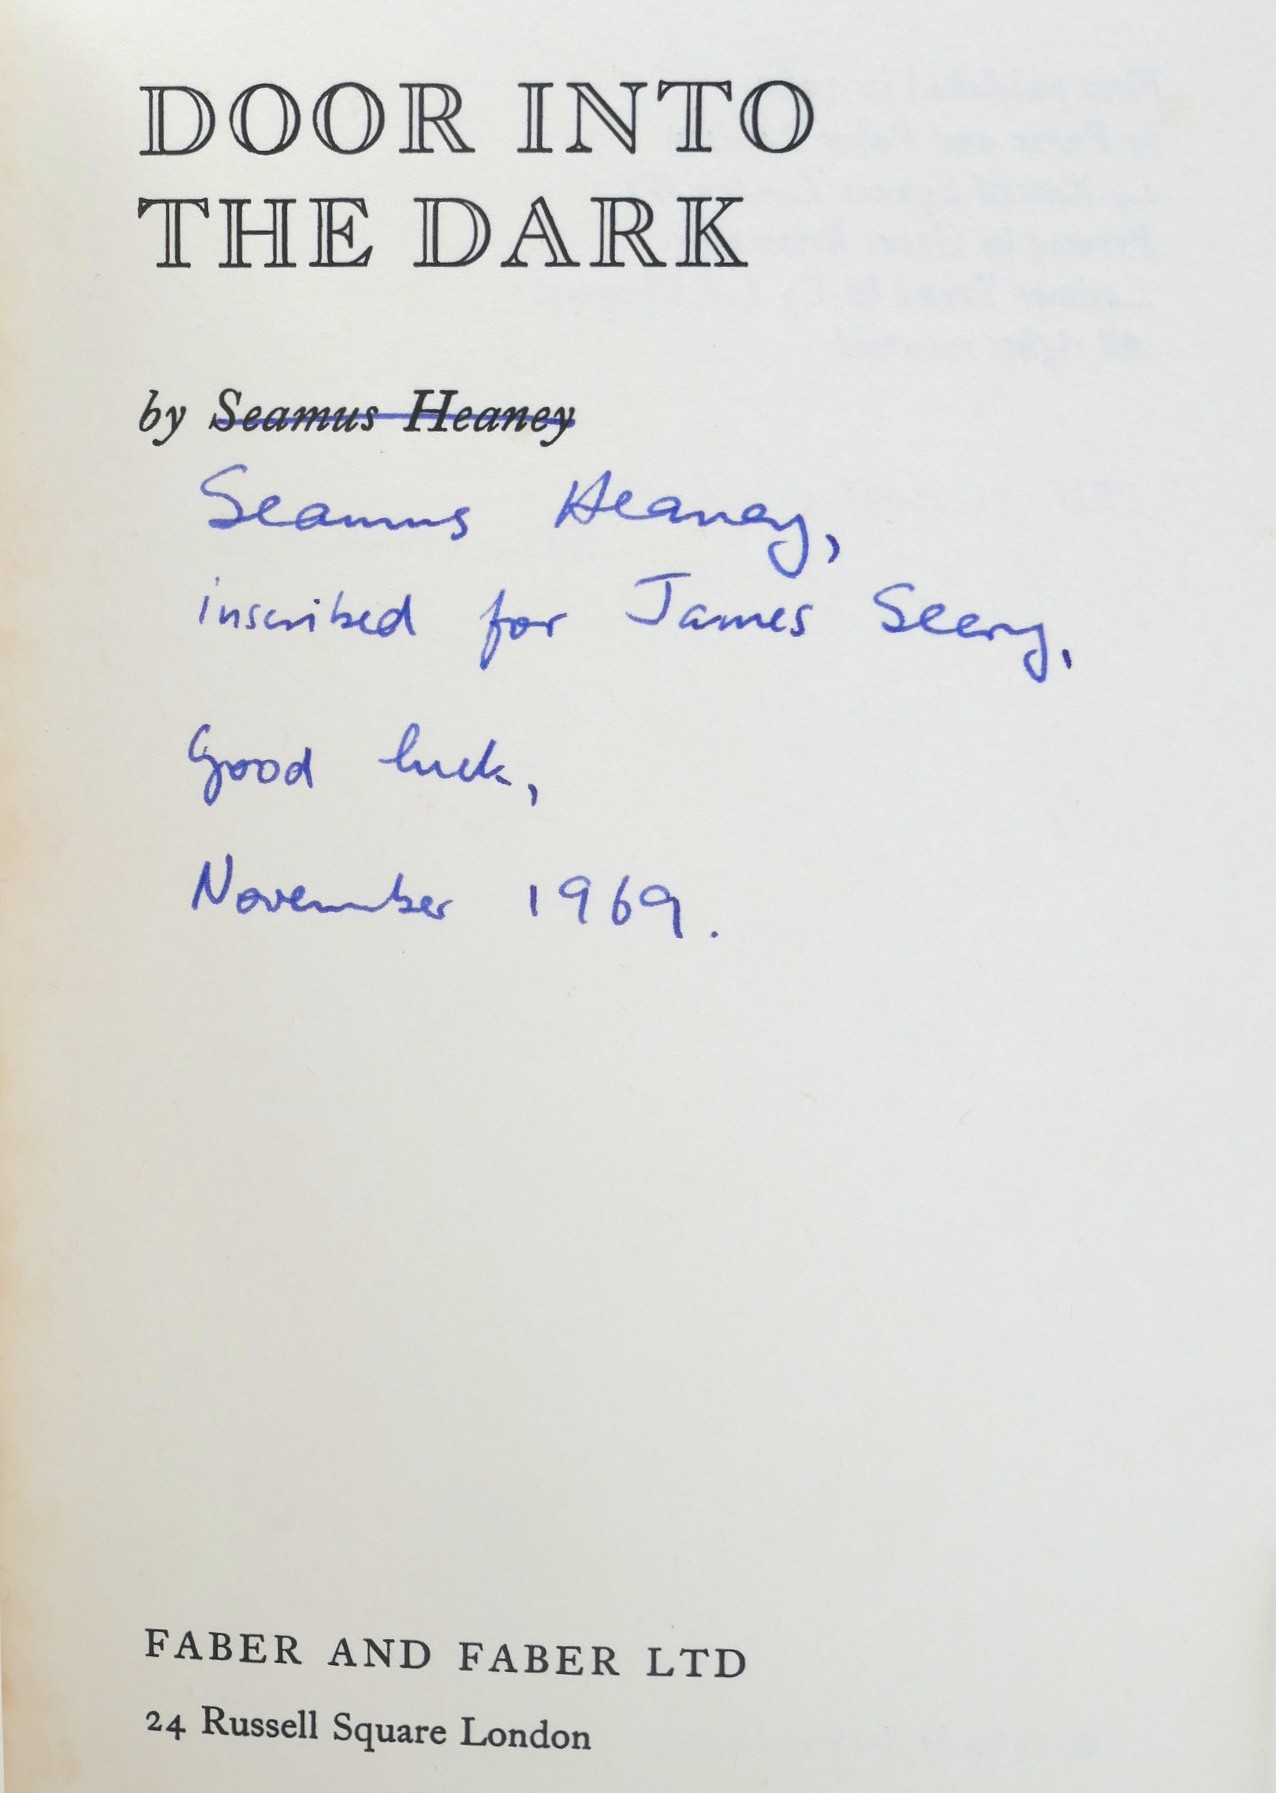 DOOR INTO
THE DARK
by Seamus Heaney
Seamus Heaney,
inscribed for James Seery,
Good luck,
November 1969.
FABER AND FABER LTD
24 Russell Square London